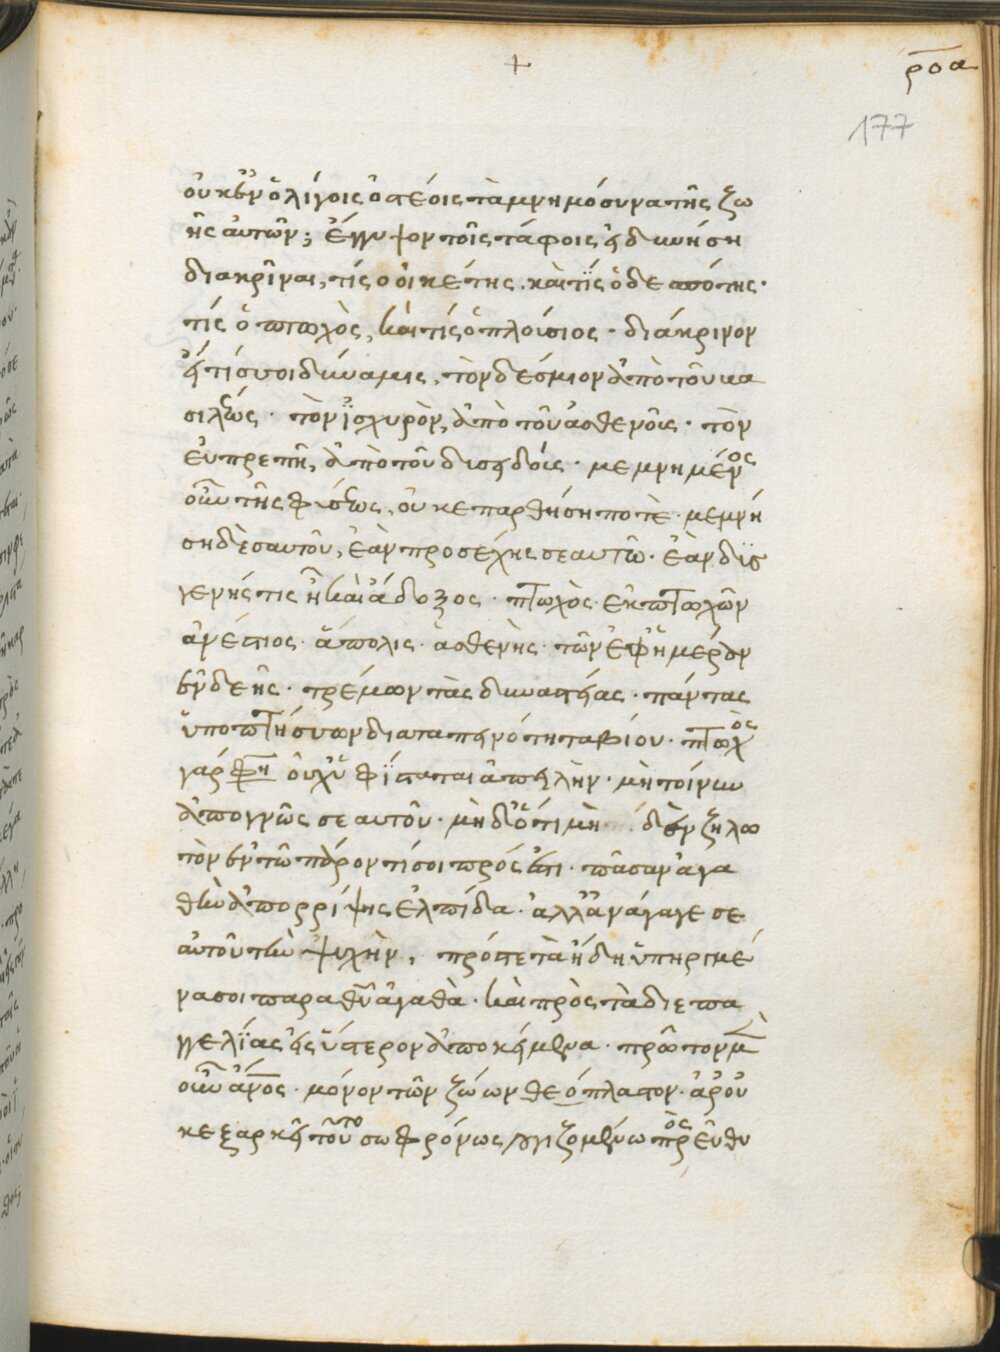 +
ροα
177
οὐκ ἐν ὀλίγοις ὀστέοις τὰ μνημόσυνα τῆς ζω
ῆς αὐτῶν; ἔγκυψον τοῖς τάφοις εἰ δυνήσῃ
διακρῖναι, τίς ὁ οἰκέτης. καὶ τίς ὁ δεσπότης·
τίς ὁ πτωχὸς, καὶ τίς ὁ πλούσιος· διάκρινον
εἴ τίς σοι δύναμις, τὸν δέσμιον ἀπὸ τοῦ βα
σιλέως· τὸν ἰσχυρὸν, ἀπὸ τοῦ ἀσθενοῦς· τὸν
εὐπρεπῆ, ἀπὸ τοῦ δυσειδοῦς· μεμνημένος
οὖν τῆς φύσεως, οὐκ ἐπαρθήσῃ ποτέ· μεμνή
σῃ δὲ σαυτοῦ, ἐὰν προσέχῃς σεαυτῶ· ἐὰν δυσ
γενής τις ῆ καὶ ἄδοξος· πτωχὸς ἐκ πτωχῶν
ἀνέστιος· ἄπολις· ἀσθενής· τῶν ἐφ' ἡμέραν
ἐνδεῆς· τρέμων τὰς δυναστείας· πάντας
ὑποπτήσσων διὰ ταπεινότητα βίου· πτωχὸς
γάρ φη οὐχ ὑφίσταται ἀπειλήν· μὴ τοίνυν
ἀπογνῶς σεαυτοῦ· μὴ δ' ὅτι μὴ δὲν ζηλω
τὸν ἐν τῶ παρόντι σοι πρόσεστι· πᾶσαν ἀγα
θὴν ἀπορρίψῃς ἐλπίδα· ἀλλ' ἀνάγαγε σε
αυτοῦ τὴν ψυχὴν, πρός τε τὰ ἤδη ὑπηργμέ
να σοι παρὰ θῦ ἀγαθὰ· καὶ πρὸς τὰ δι' ἐπα
γγελίας εἰς ὕστερον ἀποκείμενα· πρῶτον μὲν
οὖν ἄνος· μόνον τῶν ζώων θεόπλαστον· ἆρ' οὐ
κ ἐξαρκεῖ τοῦτο σωφρόνως λογιζομένω πρὸς εὐθυ